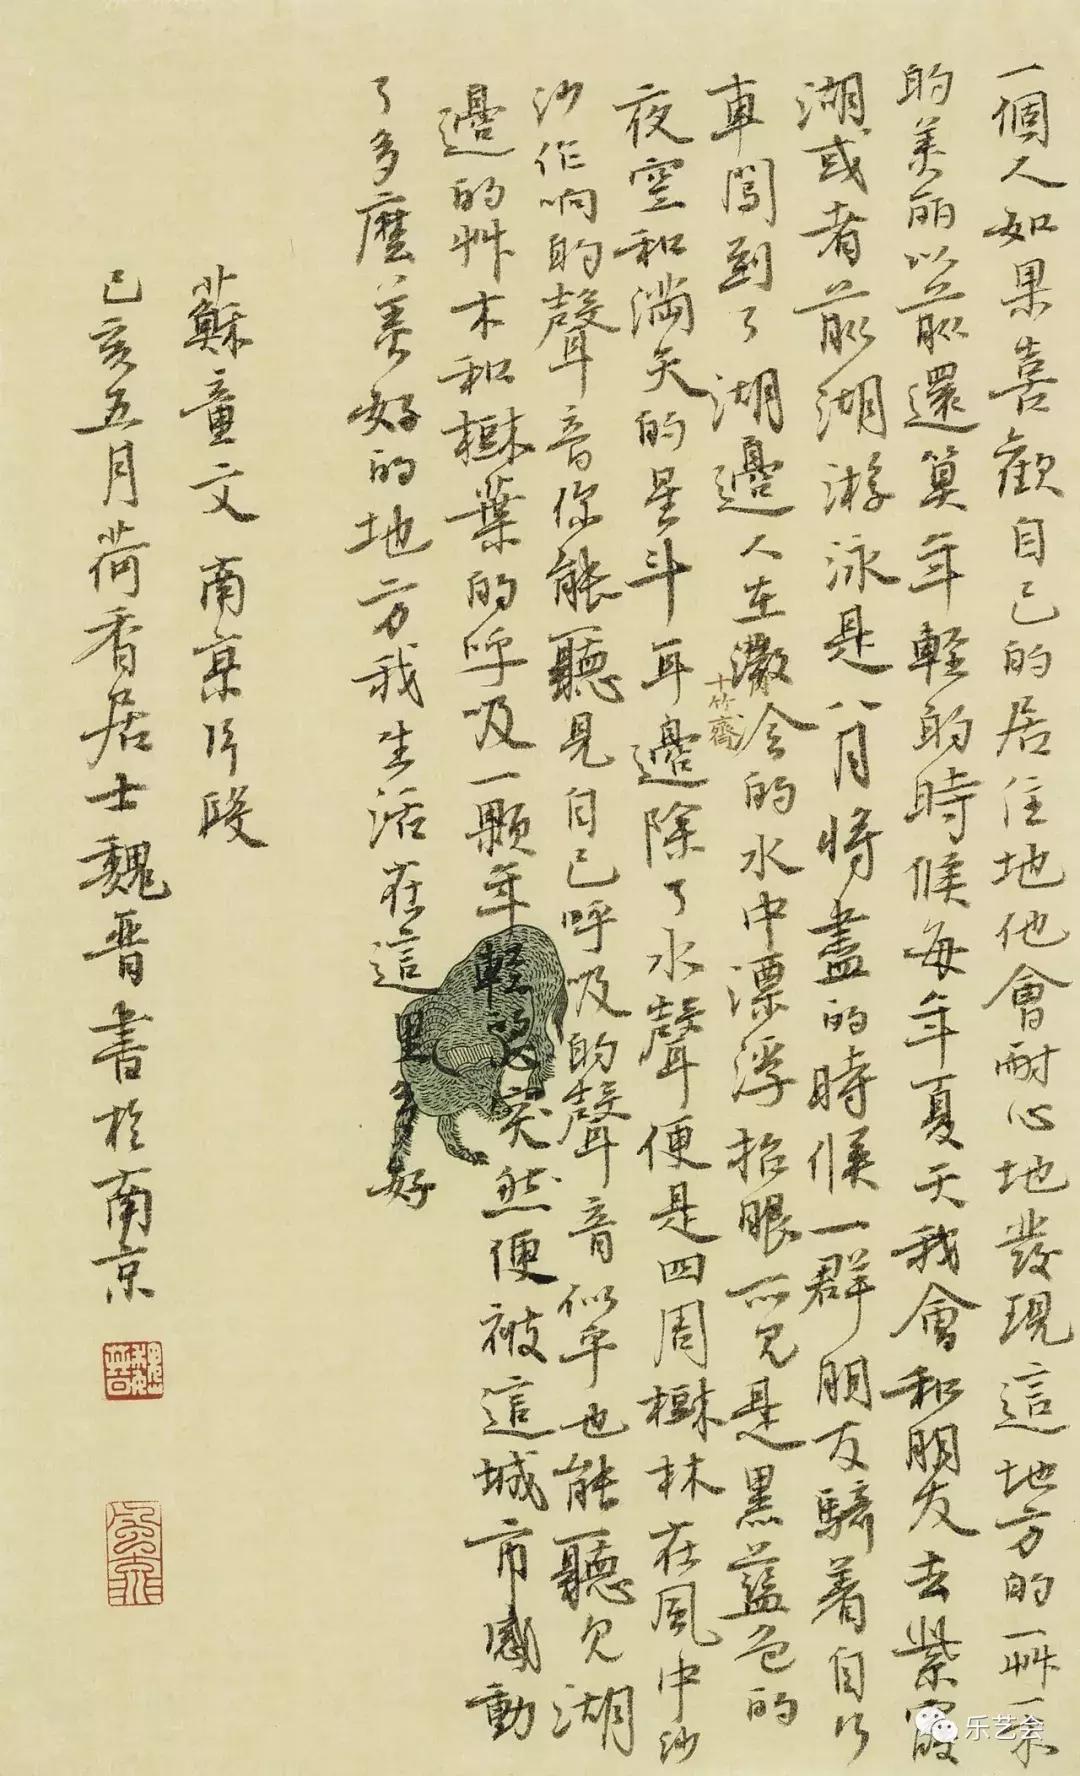 一個人如果喜歡自己的居住地他會耐心地發現這地方的一艸一木
的美麗以前還算年輕的時候每年夏天我會和朋友去紫霞
湖或者前湖游泳是八月將盡的時候一群朋友騎着自行
車闖到了湖邊人在澈冷的水中漂浮抬眼所見是黑藍色的
夜空和滿天的星斗耳邊除了水聲便是四周樹林在風中沙
沙作响的聲音你能聽見自己呼吸的聲音似乎也能聽見湖
邊的艸木和樹葉的呼吸一顆年輕的心突然便被這城市感動
了多麼美好的地方我生活在這里多好
蘇童文南京片段
己亥五月荷香居士魏晋書於南京
十竹齋
魏晋
乐艺会